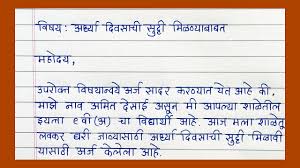 विषय : अर्ध्या दिवसाची सुट्टी मिळण्याबाबत
महोदय,
उपरोक्त विषयान्वये अर्ज सादर करण्यात येत आहे की,
माझे नाव अमित देसाई असून मी आपल्या शाळेतील
इयत्ता ८वी(अ) चा विद्यार्थी आहे. आज मला शाळेतू
लवकर घरी जाव्यासाठी अर्ध्या दिवसाची सुट्टी मिळावी
यासाठी अर्ज केलेला आहे.